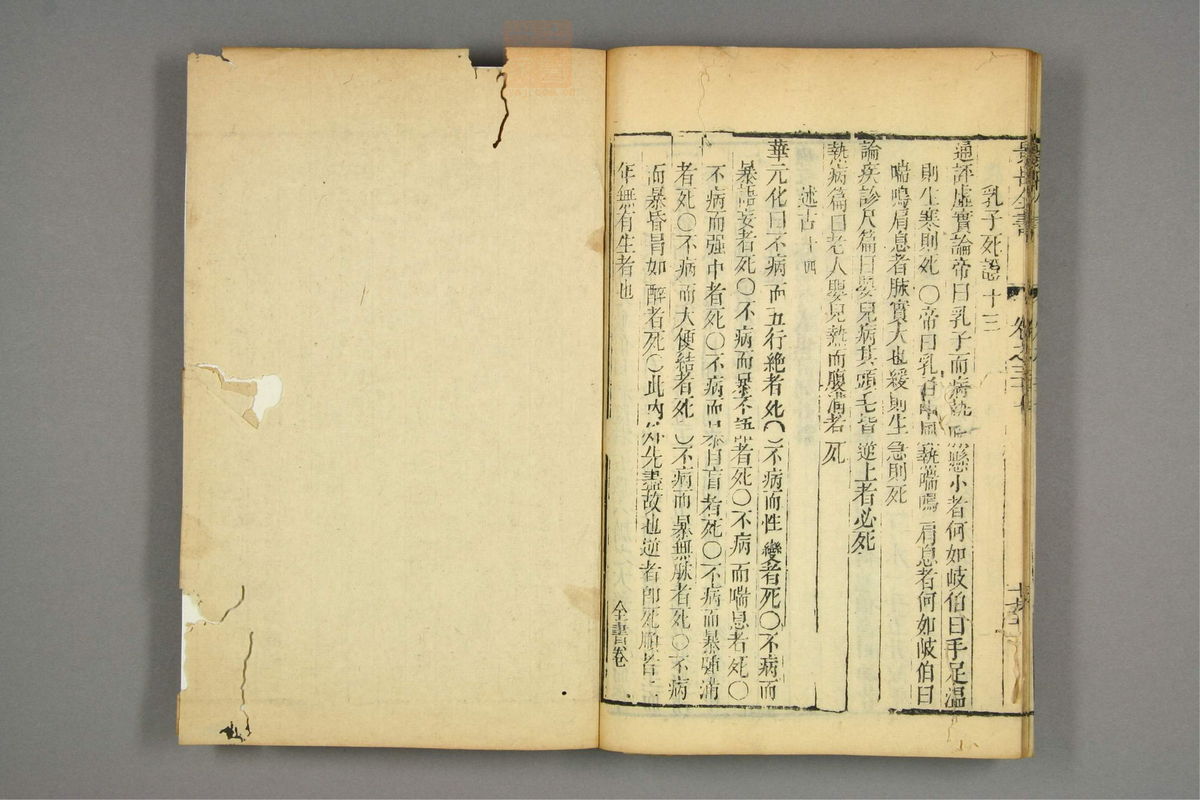 乳子死證十三
通評虛實論帝曰乳子而病熱懸小者何如岐伯曰手足溫
則生寒則死〇帝曰乳子中風熱喘鳴肩息者何如岐伯曰
喘鳴肩息者脉實大也緩則生急則死
論疾診尺篇曰嬰兒病其頭毛皆逆上者必死
熱病篇曰老人嬰兒熱而腹滿者死
述古十四
華元化曰不病而五行絶者死〇不病而性變者死〇不病而
暴語妄者死〇不病而暴不語者死〇不病而喘息者死〇
不病而强中者死〇不病而暴目盲者死〇不病而暴腫滿
者死〇不病而大便結者死〇不病而暴無脉者死〇不病
而暴昏冒如醉者死〇此內外先盡故也逆者即死順者二
年無有生者也
全書卷